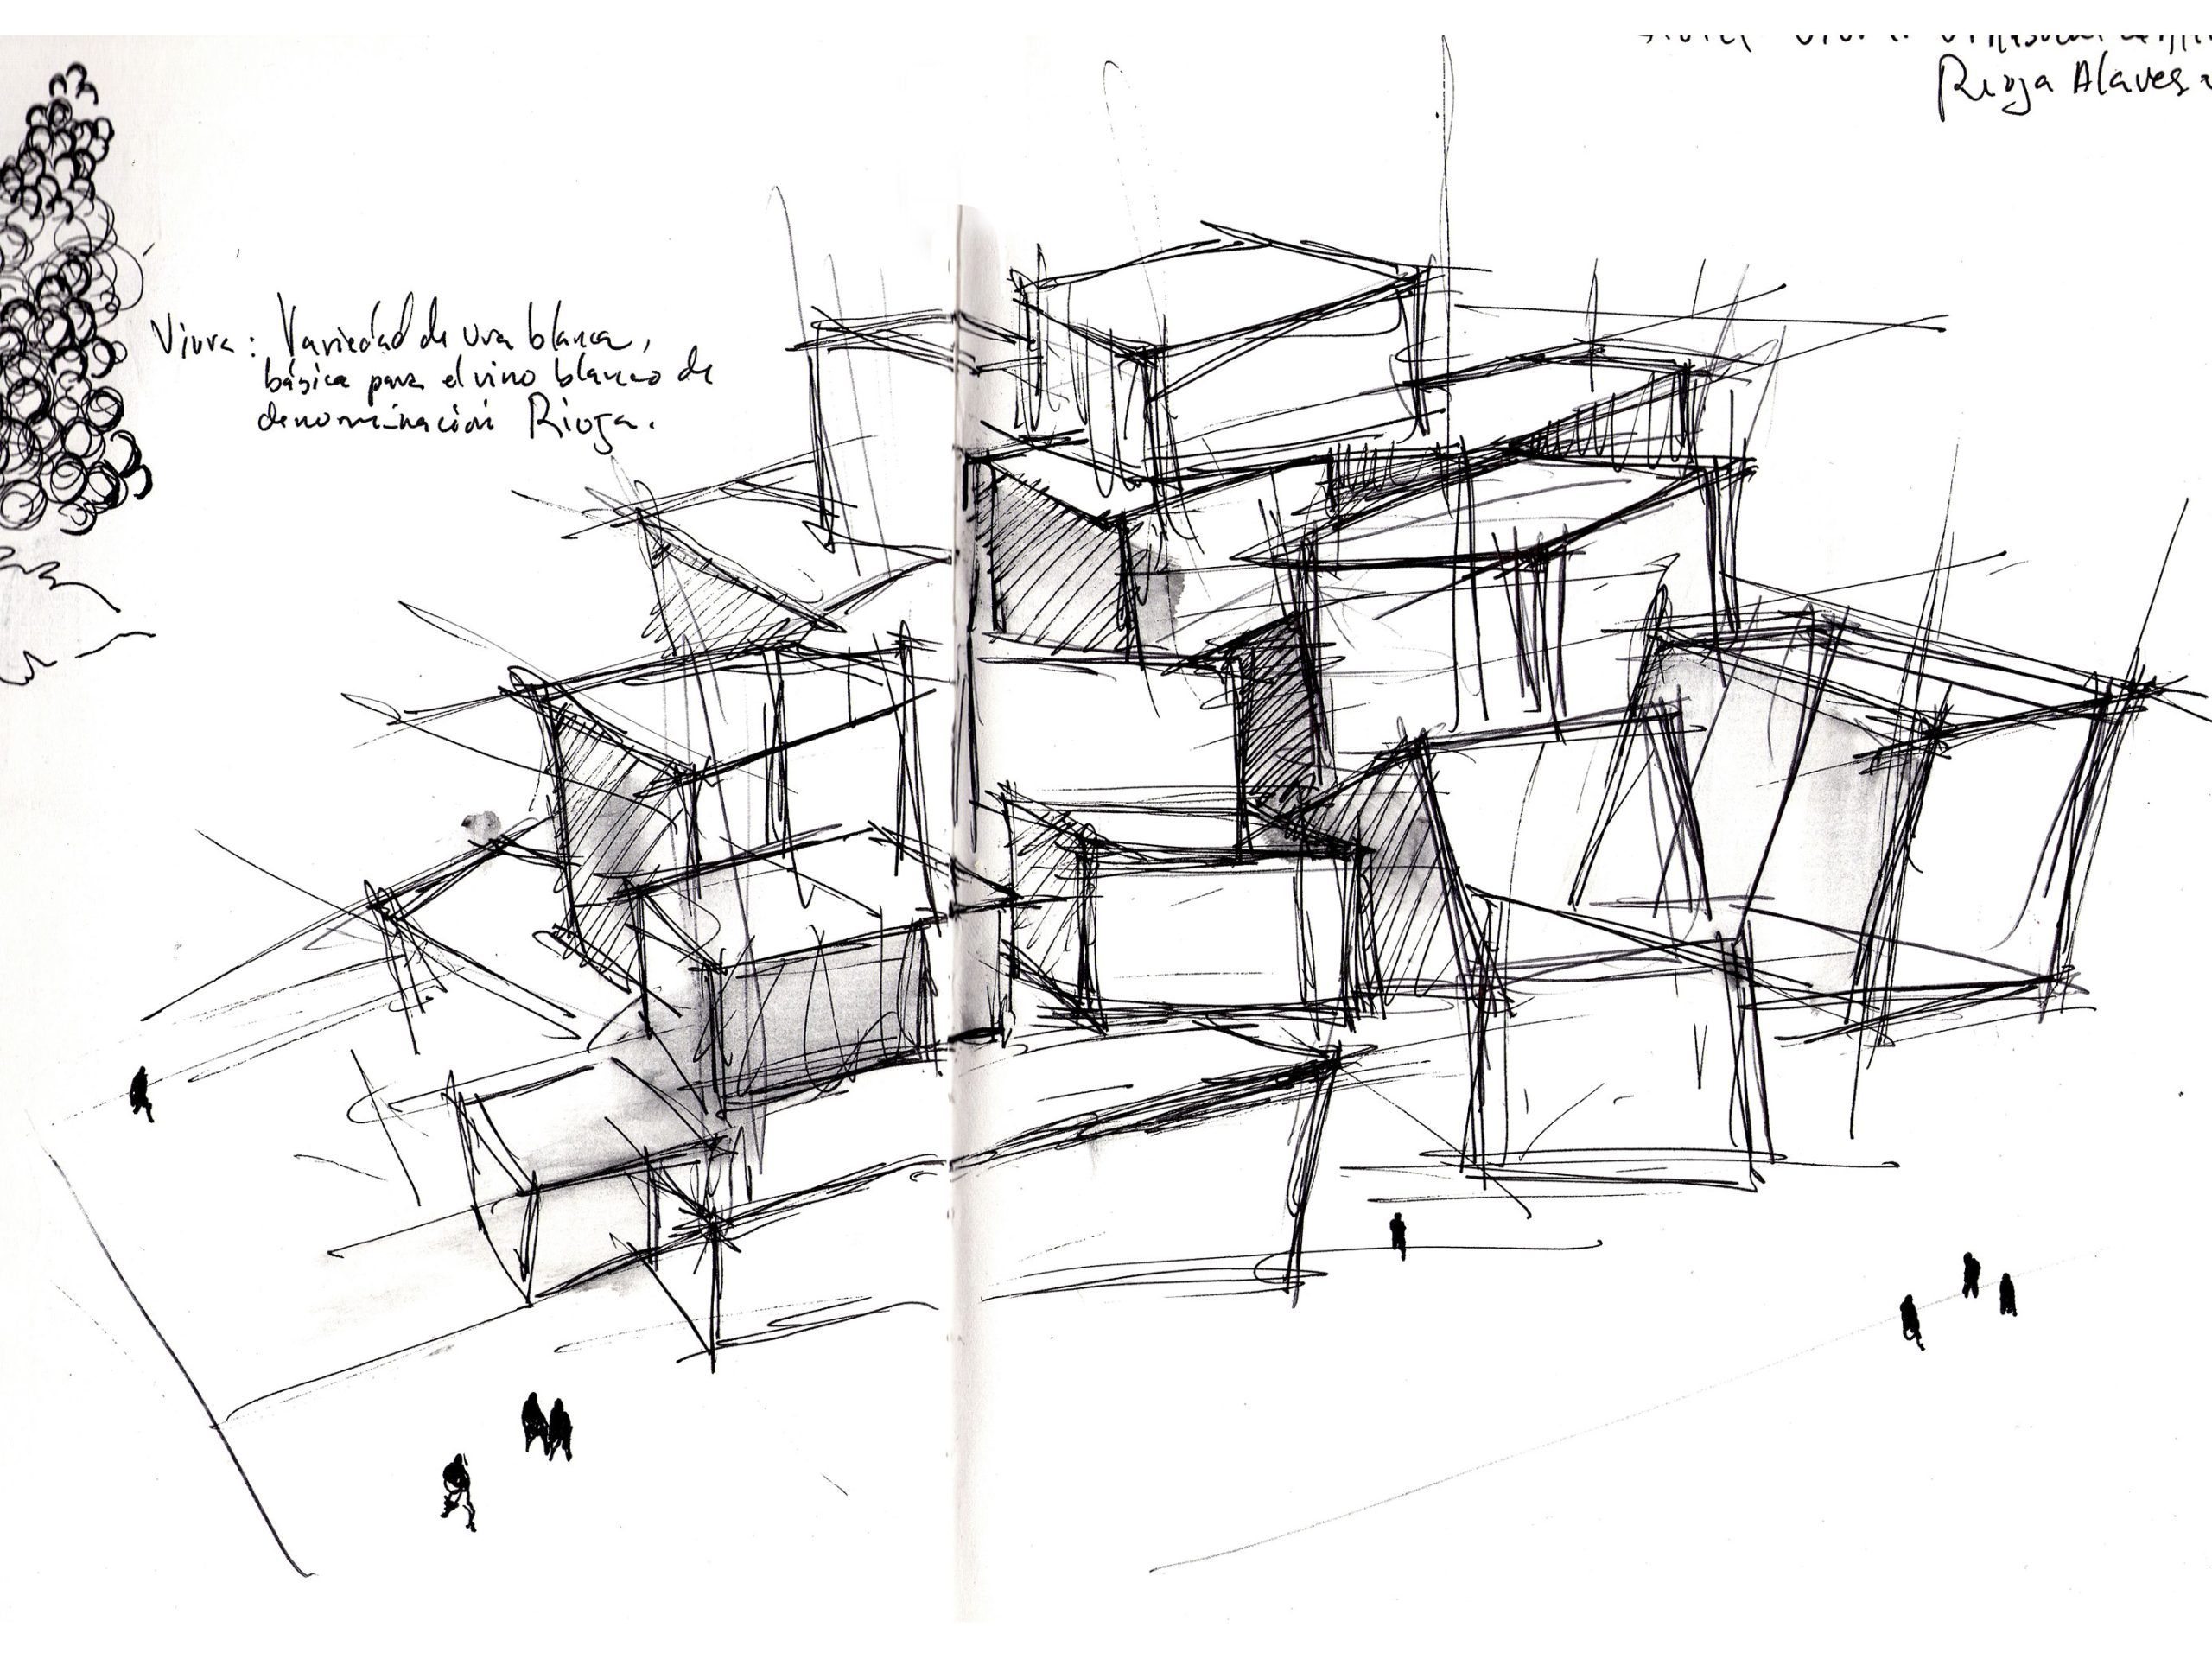 Rioja Alavesa
Viura: Variedad de uva blanca,
básica para el vino blanco de
denominación Rioja.